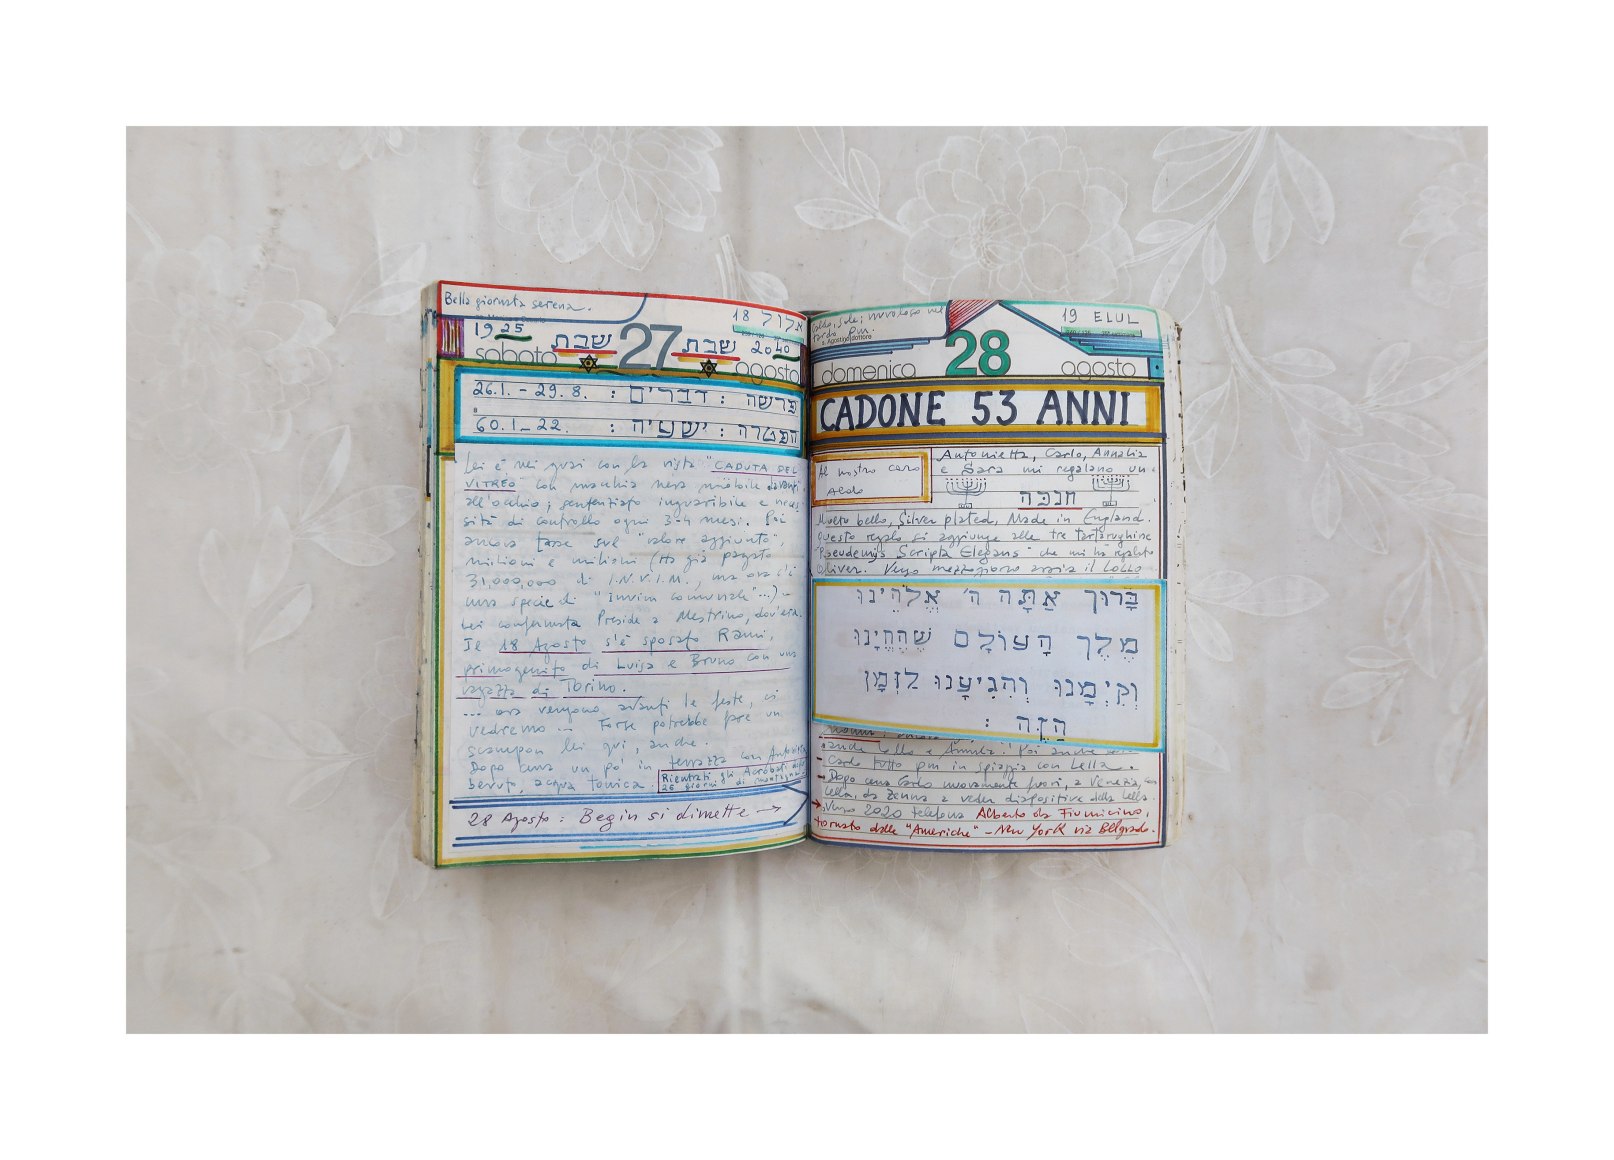 Bella giornata serena.
18 אלול
1925 שבת 27 שבת 2040
sabato agosto
26.1. - 29.8. : פרשה : דברים
60.1 - 22. : הפטרה : ישעיה
Lei è nei guai con la vista "CADUTA DEL
VITREO" con macchia nera mobile davanti
all'occhio; sentenziato inguaribile e neces
sità di controllo ogni 3-4 mesi. Poi
ancora tasse sul "valore aggiunto",
milioni e milioni (Ho già pagato
31,000,000 di I.N.V.I.M., ma ora c'è
una specie di "Invim comunale"...)
Lei confermata Preside a Mestrino, dov'era.
Il 18 Agosto s'è sposato Rami,
primogenito di Luisa e Bruno con una
ragazza di Torino.
... ora vengono avanti le feste, ci
vedremo ... Forse potrebbe fare un
scampon lei qui, anche.
Dopo cena un po' in terrazza con
bevuto, acqua tonica.
Rientrati gli Acrobati dopo
26 giorni di montagna
28 Agosto : Begin si dimette →
Caldo, sole; nuvoloso nel
tardo pm.
S. Agostino dottore
19 ELUL
domenica 28 agosto
CADONE 53 ANNI
Al nostro caro
Aldo
Antonietta, Carlo, Annalia
e Sara mi regalano una
חנכה
Molto bello, Silver plated, Made in England.
Questo regalo si aggiunge alle tre tartarughine
"Pseudemys Scripta Elegans" che mi ha regalato
Oliver. Verso mezzogiorno arriva il Lollo
בָּרוּךְ אַתָּה ה' אֱלֹהֵינוּ
מֶלֶךְ הָעוֹלָם שֶׁהֶחֱיָנוּ
וְקִיְּמָנוּ וְהִגִּיעָנוּ לַזְּמָן
הַזֶּה :
anche Lollo e Poi anche
Carlo tutto pm in spiaggia con Lella.
Dopo cena Carlo nuovamente fuori, a Venezia, con
Lella, da Zenna a veder diapositive della Lella.
Verso 2020 telefona Alberto da Fiumicino,
tornato dalle "Americhe" - New York via Belgrado.